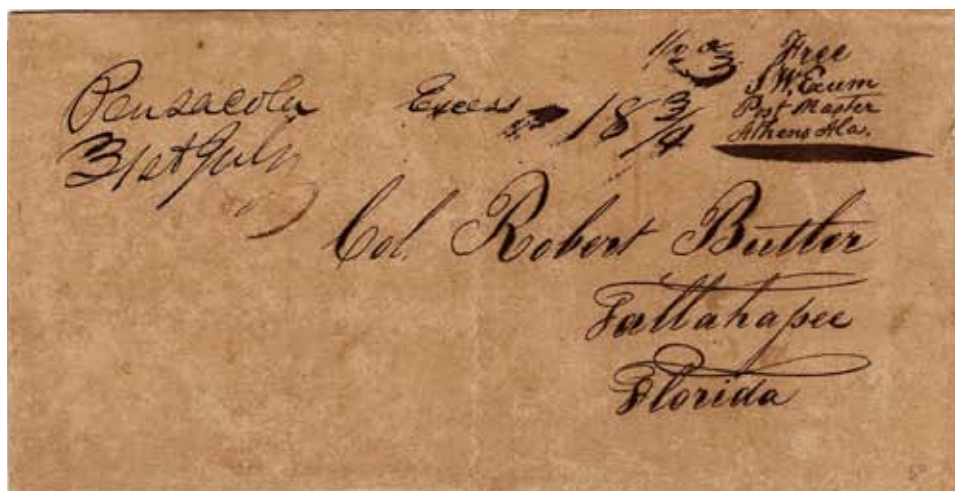 Pensacola
31st July
Excess
18 3/4
Free
J. W. Exum
Post Master
Athens Ala.
Col. Robert Butler
Tallahassee
Florida